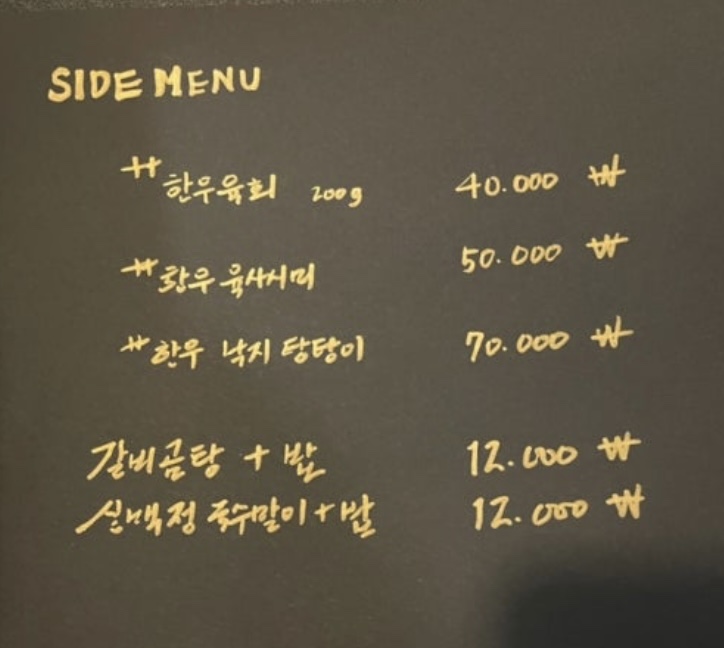 SIDE MENU
++한우육회 200g 40.000 ₩
++한우 육사시미 50.000 ₩
++한우 낙지 탕탕이 70.000 ₩
갈비곰탕 + 밥 12.000 ₩
신백정 국수말이 + 밥 12.000 ₩